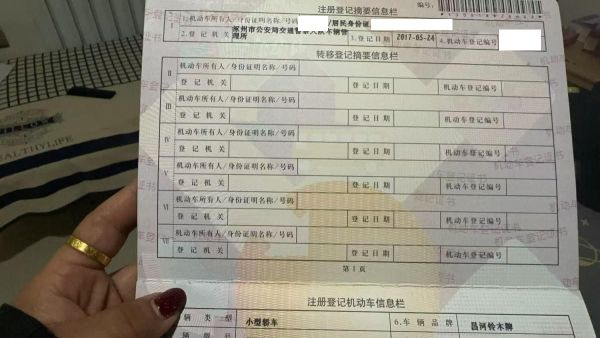 注册登记摘要信息栏
编号:
I 1.机动车所有人/身份证明名称/号码 /居民身份证
2.登记机关 市公安局交通警察支队车辆管理所 3.登记日期 2017-05-24 4.机动车登记编号
转移登记摘要信息栏
II 机动车所有人/身份证明名称/号码
登记机关 登记日期 机动车登记编号
III 机动车所有人/身份证明名称/号码
登记机关 登记日期 机动车登记编号
IV 机动车所有人/身份证明名称/号码
登记机关 登记日期 机动车登记编号
V 机动车所有人/身份证明名称/号码
登记机关 登记日期 机动车登记编号
VI 机动车所有人/身份证明名称/号码
登记机关 登记日期 机动车登记编号
VII 机动车所有人/身份证明名称/号码
登记机关 登记日期 机动车登记编号
第1页
注册登记机动车信息栏
辆类型 小型轿车 6.车辆品牌 昌河铃木牌
ALTHYLIFE